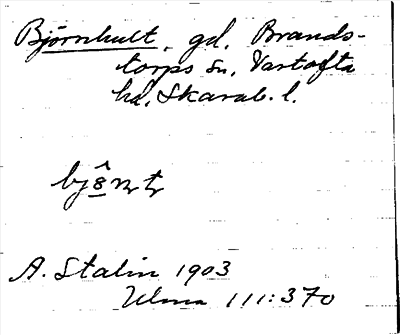 Björnhult, gd. Brands-
torps sn, Vartofta
hd, Skarab. l.
A. Stalin 1903
Ulma 111:370